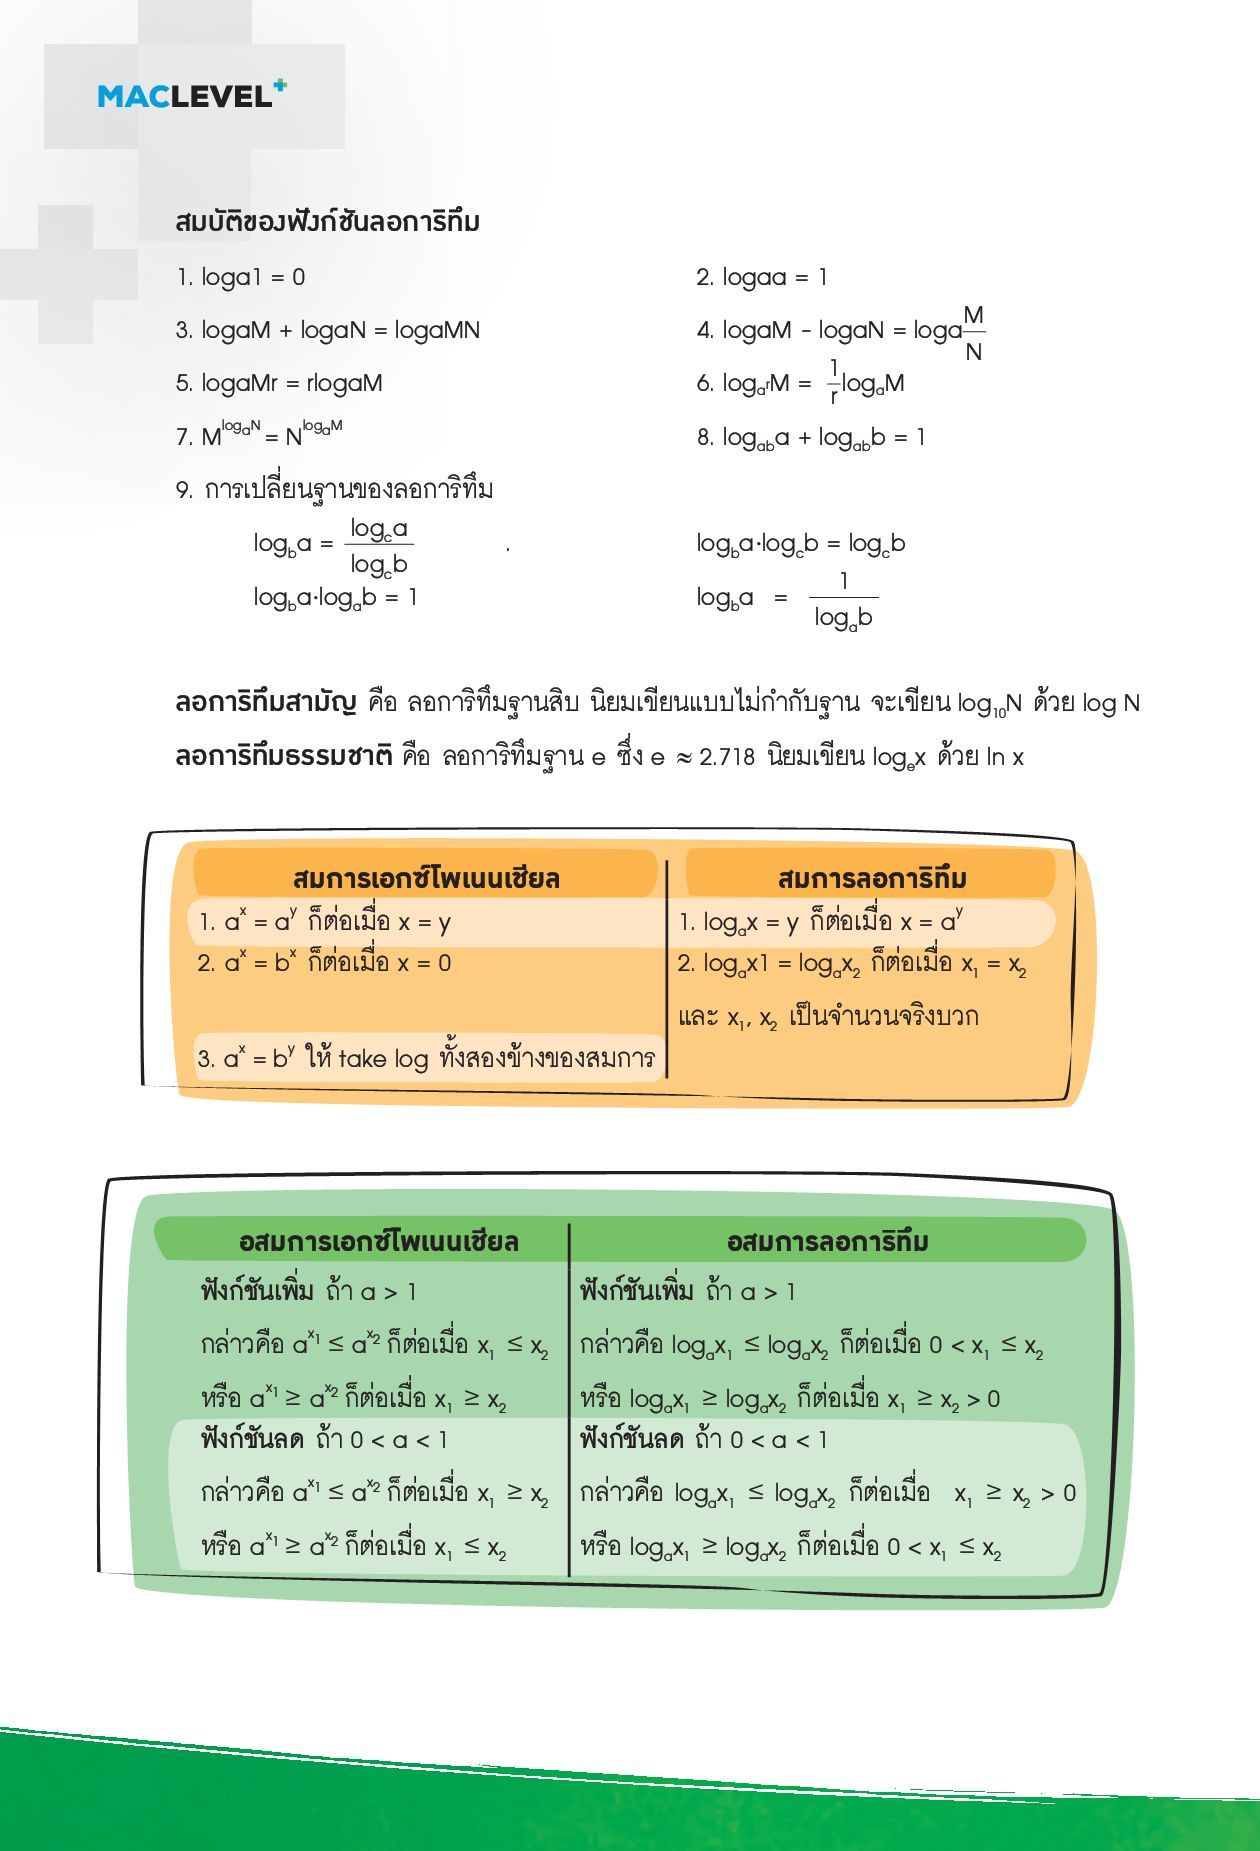 MACLEVEL+
สมบัติของฟังก์ชันลอการิทึม
1. loga1 = 0
2. logaa = 1
3. logaM + logaN = logaMN
4. logaM - logaN = loga M/N
5. logaMr = rlogaM
6. logₐʳM = 1/r logₐM
7. M^logₐN = N^logₐM
8. log_ab a + log_ab b = 1
9. การเปลี่ยนฐานของลอการิทึม
log_b a = log_c a / log_c b .
log_b a·log_c b = log_c b
log_b a·log_a b = 1
log_b a = 1 / log_a b
ลอการิทึมสามัญ คือ ลอการิทึมฐานสิบ นิยมเขียนแบบไม่กำกับฐาน จะเขียน log₁₀N ด้วย log N
ลอการิทึมธรรมชาติ คือ ลอการิทึมฐาน e ซึ่ง e ≈ 2.718 นิยมเขียน logₑx ด้วย ln x
สมการเอกซ์โพเนนเชียล
1. a^x = a^y ก็ต่อเมื่อ x = y
2. a^x = b^x ก็ต่อเมื่อ x = 0
3. a^x = b^y ให้ take log ทั้งสองข้างของสมการ
สมการลอการิทึม
1. logₐx = y ก็ต่อเมื่อ x = a^y
2. logₐx1 = logₐx₂ ก็ต่อเมื่อ x₁ = x₂
และ x₁, x₂ เป็นจำนวนจริงบวก
อสมการเอกซ์โพเนนเชียล
ฟังก์ชันเพิ่ม ถ้า a > 1
กล่าวคือ a^x₁ ≤ a^x₂ ก็ต่อเมื่อ x₁ ≤ x₂
หรือ a^x₁ ≥ a^x₂ ก็ต่อเมื่อ x₁ ≥ x₂
ฟังก์ชันลด ถ้า 0 < a < 1
กล่าวคือ a^x₁ ≤ a^x₂ ก็ต่อเมื่อ x₁ ≥ x₂
หรือ a^x₁ ≥ a^x₂ ก็ต่อเมื่อ x₁ ≤ x₂
อสมการลอการิทึม
ฟังก์ชันเพิ่ม ถ้า a > 1
กล่าวคือ logₐx₁ ≤ logₐx₂ ก็ต่อเมื่อ 0 < x₁ ≤ x₂
หรือ logₐx₁ ≥ logₐx₂ ก็ต่อเมื่อ x₁ ≥ x₂ > 0
ฟังก์ชันลด ถ้า 0 < a < 1
กล่าวคือ logₐx₁ ≤ logₐx₂ ก็ต่อเมื่อ x₁ ≥ x₂ > 0
หรือ logₐx₁ ≥ logₐx₂ ก็ต่อเมื่อ 0 < x₁ ≤ x₂